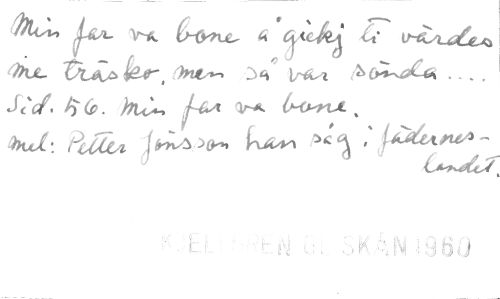 Min far va bone å gickj ti värdes
me träsko, men så var sönda.....
Sid. 56. Min far va bone.
mel: Petter Jönsson han såg i fädernes-
landet.
SKÅN 1960